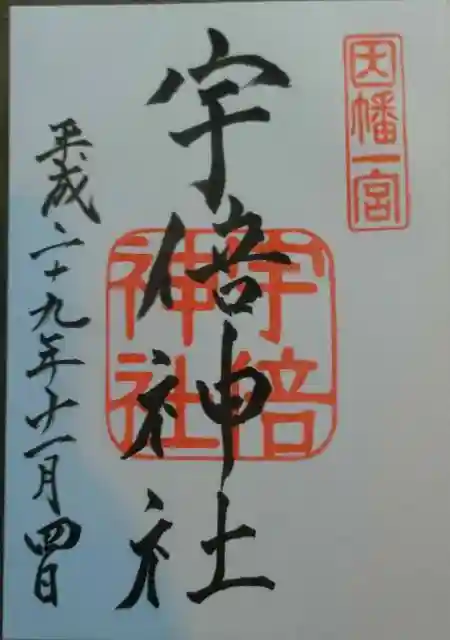 因幡一宮
宇倍神社
宇倍
神社
平成二十九年十一月四日